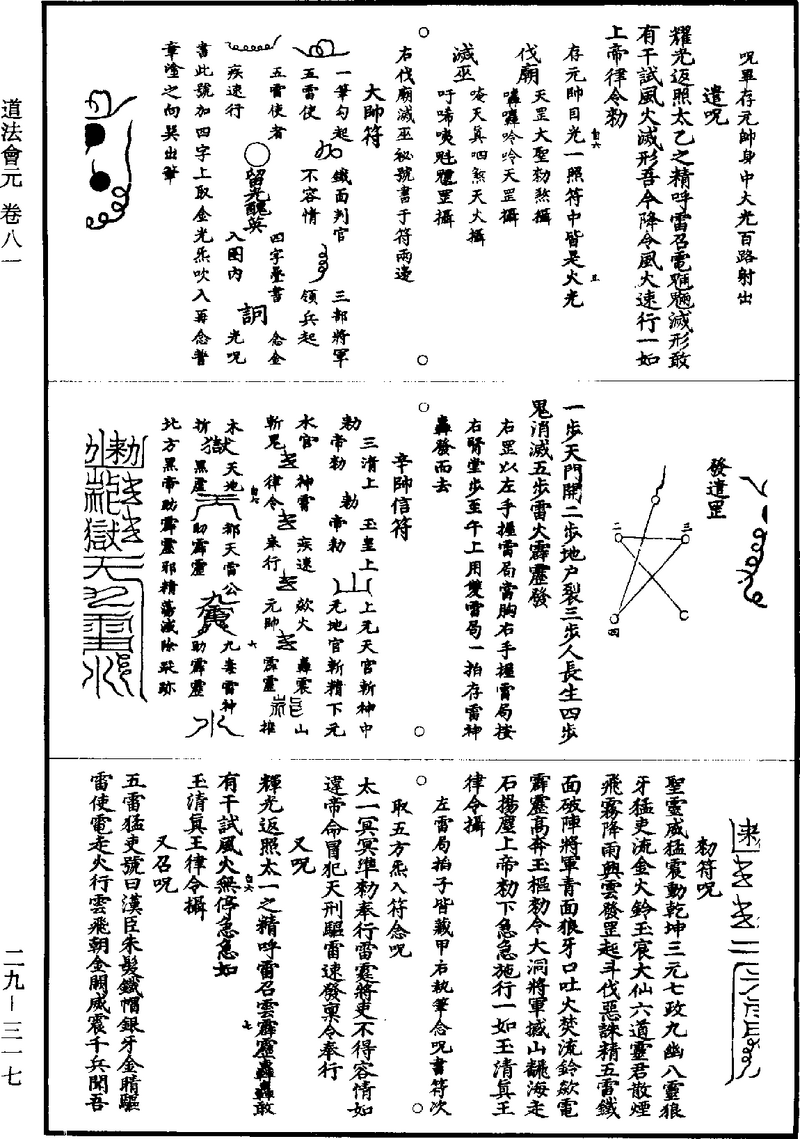 道法會元 卷八一
二九—三一七
呪畢存元帥身中大光百路射出
遣呪
耀光返照太乙之精呼雷召電魍魎滅形敢
有干試風火滅形吾今降令風火速行一如
上帝律令勑
存元帥目光一照符中皆是火光
伐廟
天罡大聖勑煞攝
吽吽天罡攝
滅巫
唵天真呬煞天火攝
吁唏㖿魁魓罡攝
右伐廟滅巫秘號書于符兩邊
大帥符
一筆勾起 鐵面判官 三部將軍
五雷使 不容情 領兵起
五雷使者 四字墨書 念金
疾速行 留光醜英 入圈內 光呪
書此號加四字上取金光炁吹入再念普
章塗之向吳出筆
發遣罡
二 三
四
一步天門開二步地户裂三步人長生四步
鬼消滅五步雷火霹靂發
右罡以左手握雷局當胸右手握雷局按
右腎堂步至午上用雙雷局一拍存雷神
轟發而去
辛帥信符
三清上 玉皇上 上元天官斬神中
勑 帝勑 勑 帝勑 元地官斬精下元
水官 神霄 疾速 歘火 轟震 山
斬鬼 律令 奉行 元帥 霹靂 摧
木 天地 都天雷公 九㚑雷神
折 黑虛 助霹靂 助霹靂
北方黑帝助霹靂邪精蕩滅除蹤跡
勑符呪
聖靈威猛震動乾坤三元七政九幽八靈狼
牙猛吏流金火鈴玉宸大仙六道靈君散煙
飛霧降雨興雲發罡起斗伐惡誅精五雷鐵
面破陣將軍青面狼牙口吐火焚流鈴歘電
霹靂高奔玉樞勑令大洞將軍撼山飜海走
石揚塵上帝勑下急急施行一如玉清真王
律令攝
左雷局拍子皆藏甲右執筆念呪書符次
取五方炁入符念呪
太一冥冥準勑奉行雷霆將吏不得容情如
違帝命冒犯天刑驅雷速發稟令奉行
又呪
輝光返照太一之精呼雷召雲霹靂轟轟敢
有干試風火無停急急如
玉清真王律令攝
又召呪
五雷猛吏號曰漢臣朱髮鐵帽銀牙金睛驅
雷使電走火行雲飛朝金闕威震千兵聞吾